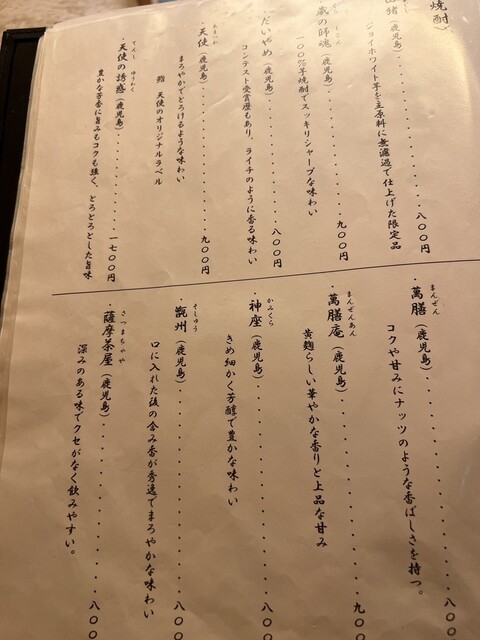 焼酎)
山猪(鹿児島)・・・・・・・・八〇〇円
ジョイホワイト芋を主原料に無濾過で仕上げた限定品
くらのしこん
蔵の師魂(鹿児島)・・・・・・・・九〇〇円
１００％芋焼酎でスッキリシャープな味わい
だいやめ(鹿児島)・・・・・・・・八〇〇円
コンテスト受賞歴もあり、ライチのように香る味わい
あまつか
・天使(鹿児島)・・・・・・・・九〇〇円
まろやかでとろけるような味わい
鮨 天使のオリジナルラベル
てんし ゆうわく
・天使の誘惑(鹿児島)・・・・・・・・一七〇〇円
豊かな芳香に旨みもコクも強く、とろとろとした旨味
まんぜん
・萬膳(鹿児島)・・・・・・・・八〇〇
コクや甘みにナッツのような香ばしさを持つ。
まんぜんあん
・萬膳庵(鹿児島)・・・・・・・・九〇
黄麹らしい華やかな香りと上品な甘み
かみくら
・神座(鹿児島)・・・・・・・・八〇〇
きめ細かく芳醇で豊かな味わい
そしゅう
・甑州(鹿児島)・・・・・・・・八〇〇
口に入れた後の含み香が秀逸でまろやかな味わい
さつまちゃや
・薩摩茶屋(鹿児島)・・・・・・・・八〇〇
深みのある味でクセがなく飲みやすい。